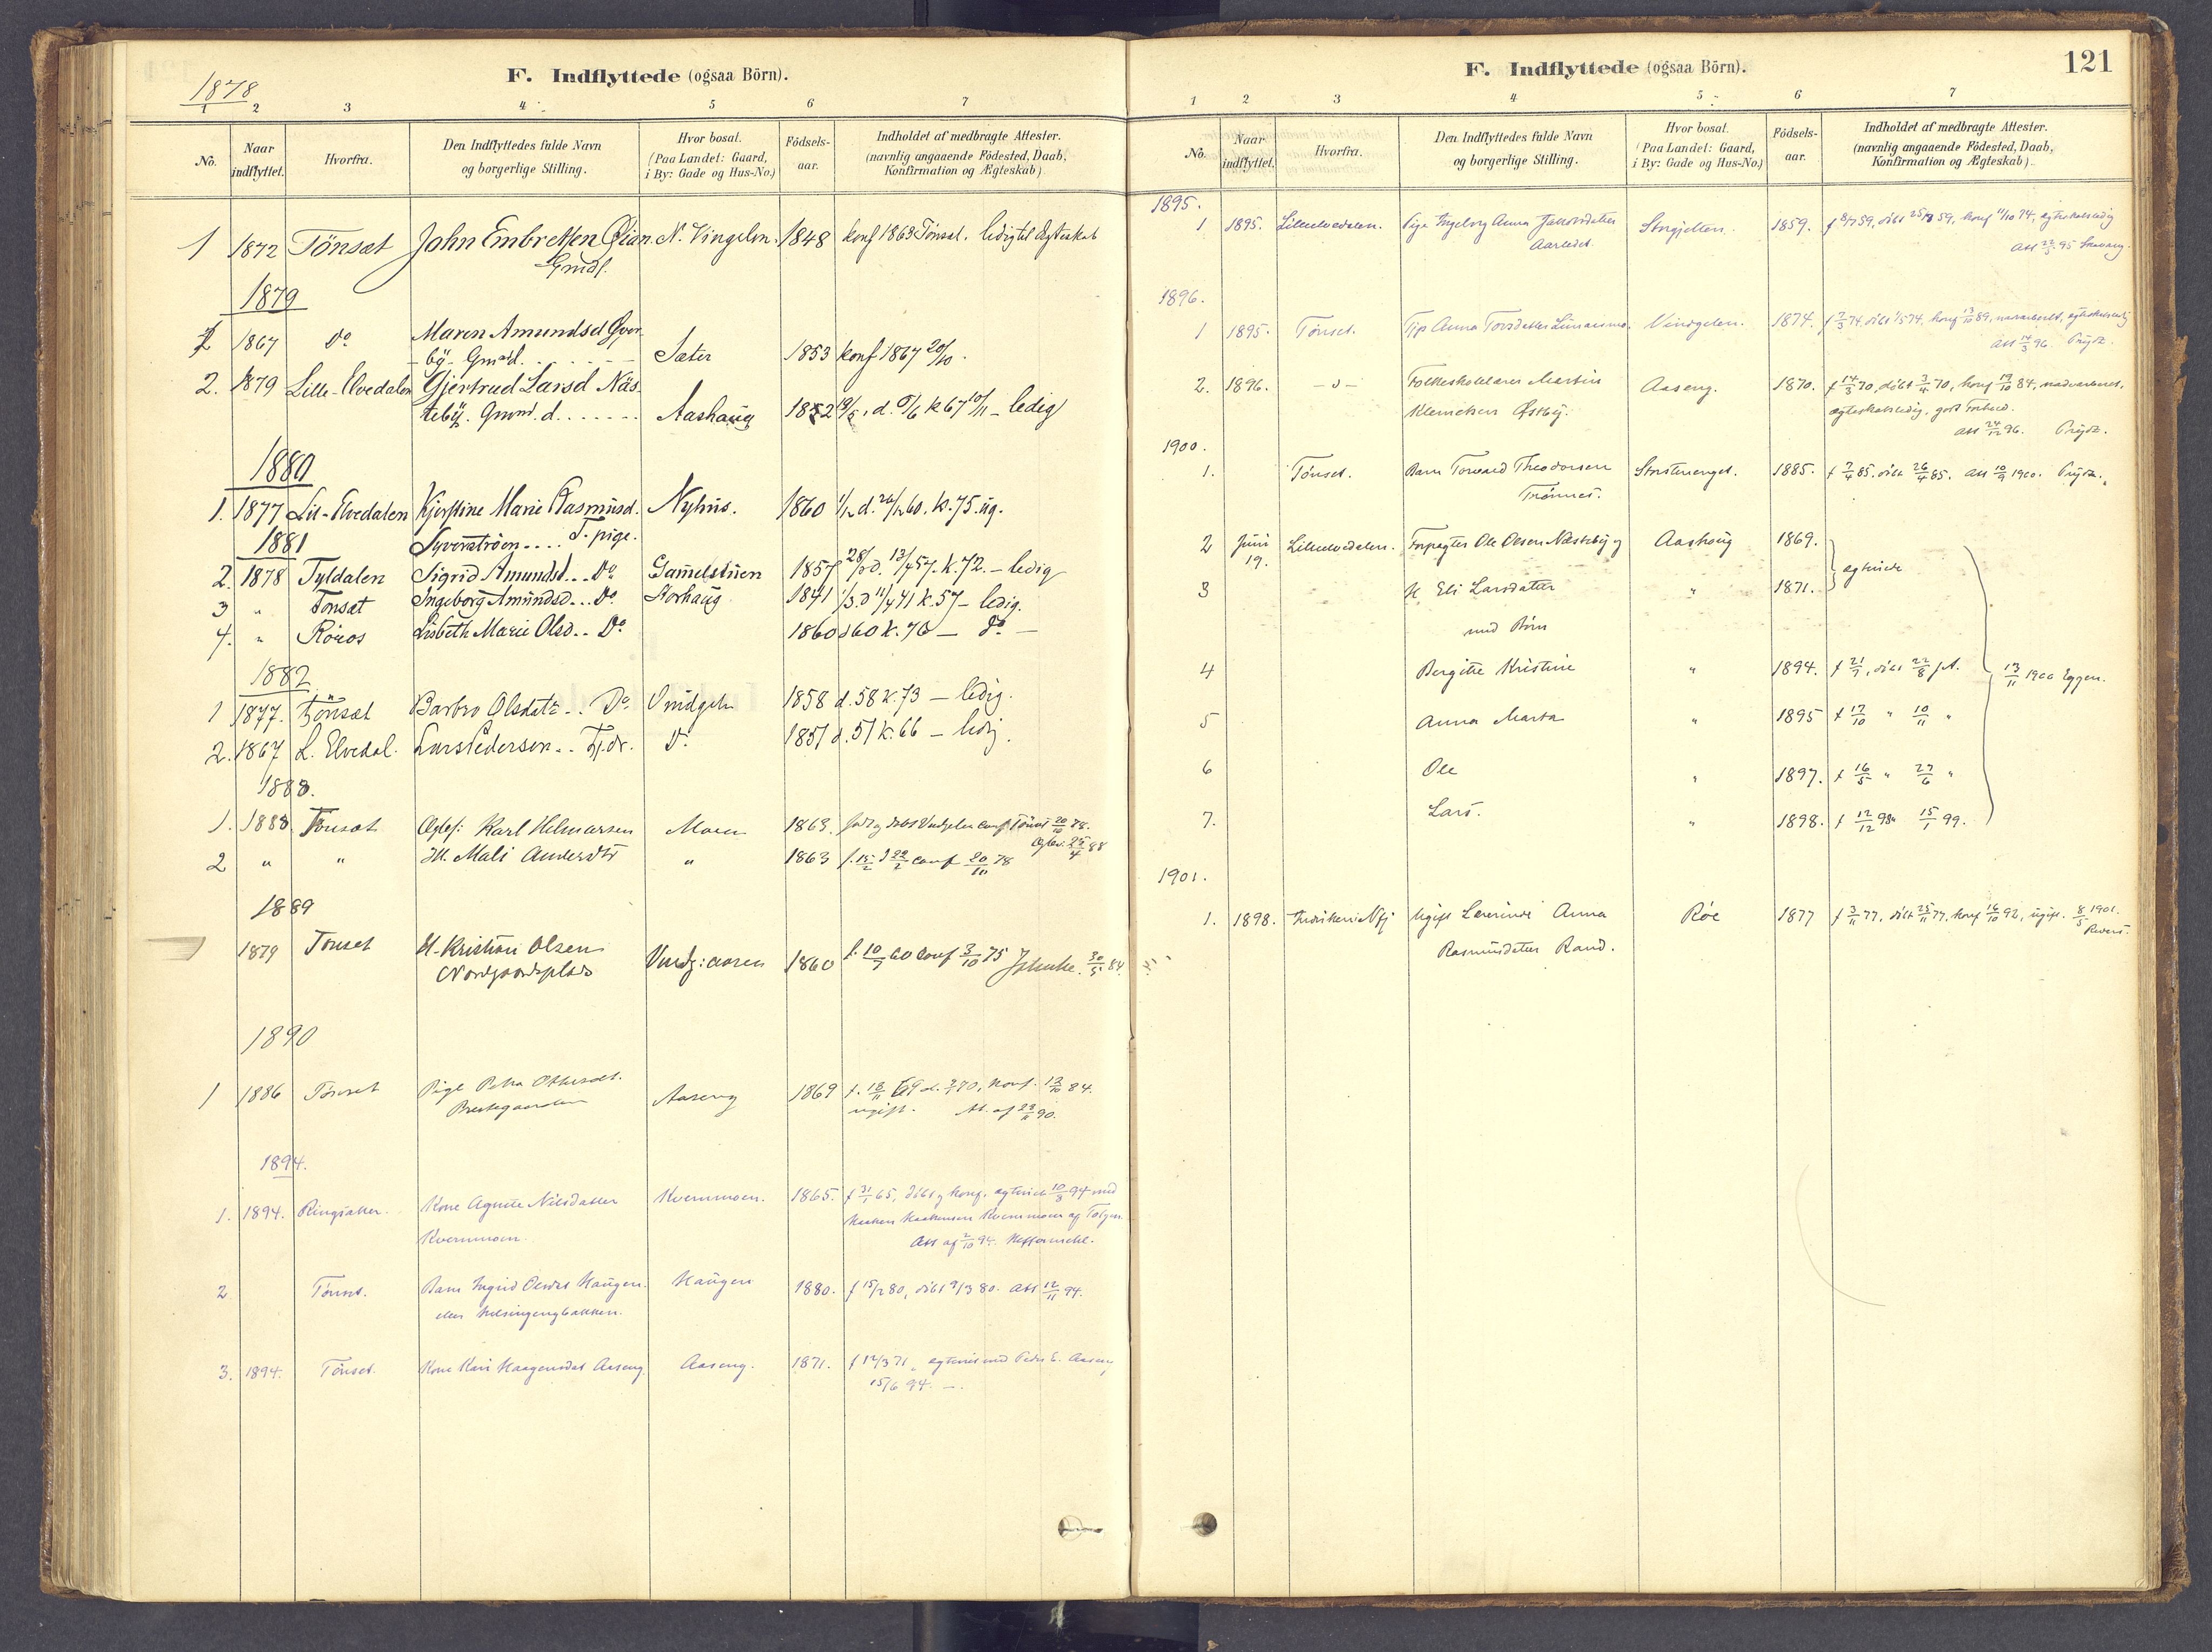 F. Indflyttede (ogsaa Börn).
1878
1 2 3 4 5 6 7
No. Naar indflyttet. Hvorfra. Den Indflyttedes fulde Navn og borgerlige Stilling. Hvor bosat. (Paa Landet: Gaard, i By: Gade og Hus-No.) Födsels-aar. Indholdet af medbragte Attester. (navnlig angaaende Födested, Daab, Konfirmation og Ægteskab)
1 1872 Tönsæt John Embretsen Øian N. Vingelen. 1848 konf 1863 Tönsæt. ledig til Ægteskab
Gmdf.
1879
1867 do Maren Amundsd Øver
by- Gmd. Sæter 1853 konf 1867 20/10.
2. 1879 Lille-Elvedalen Gjertrud Larsd Näs
teby. Gmd. d. Aashaug 1852 d. 6/6 k 67 10/11 - ledig
1880
1. 1877 Lil-Elvedalen Kjerstine Marie Rasmusd. Nyhus. 1860 1/12 d. 26/12 60. k. 75. ug.
1881 T. pige.
2. 1878 Tyldalen Sigrid Amundsd... Do Gammelstuen 1857 28/3 d. 13/4 57. k. 72. - ledig
3 " Tönsæt Ingeborg Amundsd... Do Storhaug 1841 1/3. d 11/4 41 k. 57 - ledig.
4. " Röros Lisbeth Marie Olsd.. Do 1860 d 60 k. 76 - do -
1882
1 1877. Tönsæt Barbro Olsdatr.. Do Vindgeln 1858 d. 58 k. 73 - ledig.
2. 1867 L. Elvedal. Lars Pedersen.. Tj.dr. Do 1851 d. 51 k. 66 - ledig.
1888.
1. 1888 Tönsæt Ægtef: Karl Hilmarsen Moen 1863. conf Tönset 20/10 78.
Ægtev. 25/4 88
2 " " H. Mali Andersdtr " 1863 f. 15/2 d 22/2 conf 20/10 78
1889
1 1879 Tönset H. Kristian Olsen
Nordgaardsplads Vindg: aasen 1860 f. 10/9 60 conf 3/10 75 30/5 84
1890
1 1886 Tönset Pige Petra Ottersdt. Aaseng 1869 f. 18/11 69 d. 2/1 70, konf. 12/10 84.
Prestegaarden ugift. At. af 23/11 90.
1894.
1. 1894. Ringsaker. Kone Agnete Nilsdatter Kvernmoen. 1865. f 31/1 65, döbt og konf. ægteviet 10/3 94 med
Kvernmoen. Haaken Haakensen Kvernmoen af Tolgen.
Att af 2/10 94.
2 Tönset. Barn Ingrid Olsdat Haugen. Haugen 1880. f 15/2 80, döbt 9/3 80. Att 12/11 94.
eller
3. 1894. Tönset. Kone Kari Haagensdat Aaseng. Aaseng. 1871. f 12/3 71, ægteviet med Peder E. Aasen,
15/6 94. -.
F. Indflyttede (ogsaa Börn). 121
1 2 3 4 5 6 7
No. Naar indflyttet. Hvorfra. Den Indflyttedes fulde Navn og borgerlige Stilling. Hvor bosat. (Paa Landet: Gaard, i By: Gade og Hus-No.) Födsels-aar. Indholdet af medbragte Attester. (navnlig angaaende Födested, Daab, Konfirmation og Ægteskab).
1895.
1 1895. Lilleelvedalen. Pige Ingeborg Anna Jakobsdatter 1859. f 8/7 59, döbt 59, konf 11/10 74, ægteskabsledig
Att 22/5 95
1896.
1 1895. Tönset. Pige Anna Torsdatter Vindgelen. 1874. f 2/3 74, döbt 1/5 74, konf 13/10 89, nadverberet, ægteskabsledig
Att 14/3 96. Prydz.
2. 1896. -"- Folkeskolelærer Martin Aaseng. 1870. f 14/3 70, döbt 3/4 70, konf 19/10 84, nadverberet,
Klemetsen Østby. ægteskabsledig, godt Forhold.
Att 24/12 96. Prydz.
1900.
1. Tönset. Barn Torvald Theodorsen 1885. f 7/4 85. döbt 26/4 85. Att 10/9 1900. Prydz.
Trönnes.
2 Juni Lilleelvedalen. Forpagter Ole Olsen Næsteby og Aashaug 1869.
19. ægteviede
3 H Eli Larsdatter " 1871.
med Börn
4 Bergitte Kristine " 1894. f 21/7, döbt 22/8 s.A. 13/11 1900 Eggen.
5 Anna Marta " 1895 f 17/10 " 10/11 "
6 Ole " 1897. f 16/5 " 27/6 "
7. Lars. " 1898. f 12/12 98 " 15/1 99.
1901.
1. 1898. Ugift Lærerinde Anna Röe 1877 f 3/11 77, döbt 25/11 77, konf 16/10 92, ugift. 8/5 1901.
Rasmusdatter Rand.